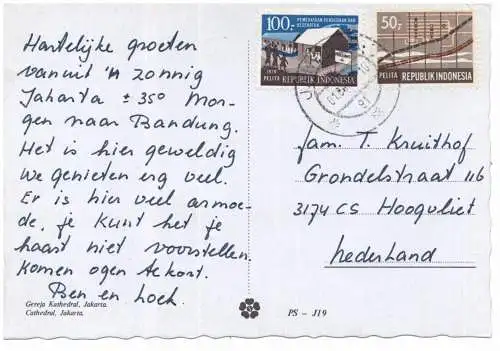 Hartelijke groeten
vanuit 'n zonnig
Jakarta ± 35° Mor-
gen naar Bandung.
Het is hier geweldig
we genieten erg veel.
Er is hier veel armoe-
de, je kunt het je
haast niet voorstellen.
Komen ogen te kort.
Ben en Loek.
Gereja Kathedral, Jakarta.
Cathedral, Jakarta.
PS - J19
100,-
PEMERATAAN PENDIDIKAN DAN
KESEHATAN
1979
PELITA REPUBLIK INDONESIA
50,-
PELITA REPUBLIK INDONESIA
fam. T. Kruithof
Grondelstraat 116
3174 CS Hoogvliet
Nederland